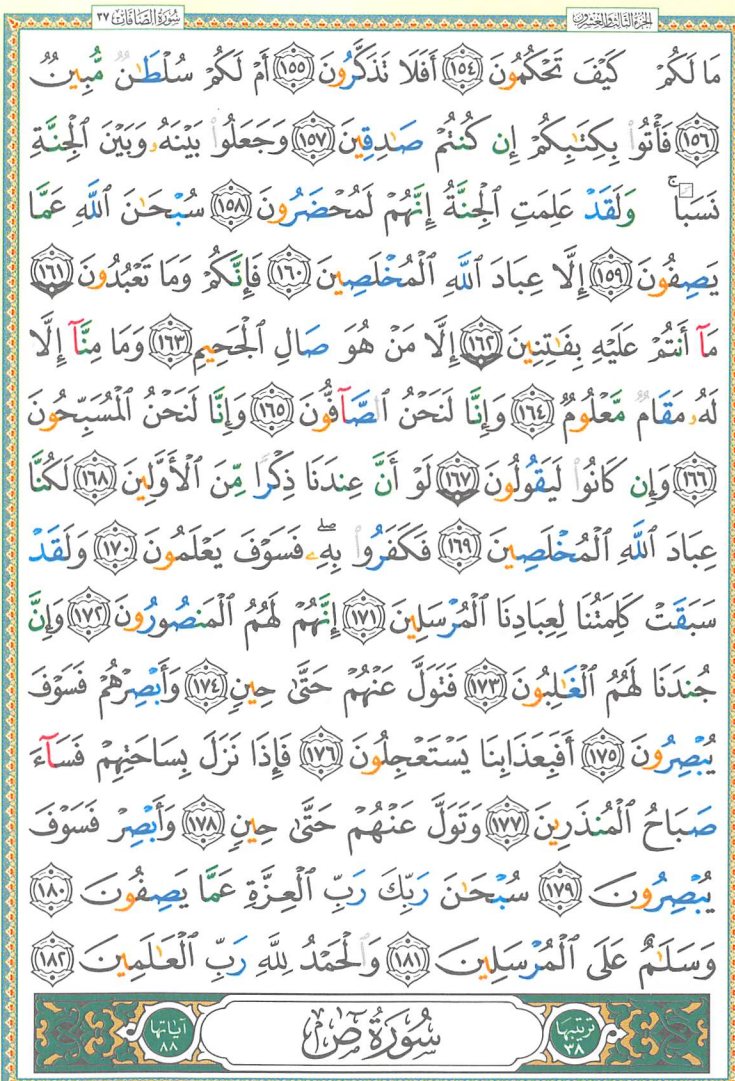 الجزء الثالث والعشرون سورة الصافات ٣٧
مَا لَكُمْ كَيْفَ تَحْكُمُونَ ١٥٤ أَفَلَا تَذَكَّرُونَ ١٥٥ أَمْ لَكُمْ سُلْطَـٰنٌ مُّبِينٌ
١٥٦ فَأْتُوا۟ بِكِتَـٰبِكُمْ إِن كُنتُمْ صَـٰدِقِينَ ١٥٧ وَجَعَلُوا۟ بَيْنَهُۥ وَبَيْنَ ٱلْجِنَّةِ
نَسَبًا ۚ وَلَقَدْ عَلِمَتِ ٱلْجِنَّةُ إِنَّهُمْ لَمُحْضَرُونَ ١٥٨ سُبْحَـٰنَ ٱللَّهِ عَمَّا
يَصِفُونَ ١٥٩ إِلَّا عِبَادَ ٱللَّهِ ٱلْمُخْلَصِينَ ١٦٠ فَإِنَّكُمْ وَمَا تَعْبُدُونَ ١٦١
مَآ أَنتُمْ عَلَيْهِ بِفَـٰتِنِينَ ١٦٢ إِلَّا مَنْ هُوَ صَالِ ٱلْجَحِيمِ ١٦٣ وَمَا مِنَّآ إِلَّا
لَهُۥ مَقَامٌ مَّعْلُومٌ ١٦٤ وَإِنَّا لَنَحْنُ ٱلصَّآفُّونَ ١٦٥ وَإِنَّا لَنَحْنُ ٱلْمُسَبِّحُونَ
١٦٦ وَإِن كَانُوا۟ لَيَقُولُونَ ١٦٧ لَوْ أَنَّ عِندَنَا ذِكْرًا مِّنَ ٱلْأَوَّلِينَ ١٦٨ لَكُنَّا
عِبَادَ ٱللَّهِ ٱلْمُخْلَصِينَ ١٦٩ فَكَفَرُوا۟ بِهِۦ ۖ فَسَوْفَ يَعْلَمُونَ ١٧٠ وَلَقَدْ
سَبَقَتْ كَلِمَتُنَا لِعِبَادِنَا ٱلْمُرْسَلِينَ ١٧١ إِنَّهُمْ لَهُمُ ٱلْمَنصُورُونَ ١٧٢ وَإِنَّ
جُندَنَا لَهُمُ ٱلْغَـٰلِبُونَ ١٧٣ فَتَوَلَّ عَنْهُمْ حَتَّىٰ حِينٍ ١٧٤ وَأَبْصِرْهُمْ فَسَوْفَ
يُبْصِرُونَ ١٧٥ أَفَبِعَذَابِنَا يَسْتَعْجِلُونَ ١٧٦ فَإِذَا نَزَلَ بِسَاحَتِهِمْ فَسَآءَ
صَبَاحُ ٱلْمُنذَرِينَ ١٧٧ وَتَوَلَّ عَنْهُمْ حَتَّىٰ حِينٍ ١٧٨ وَأَبْصِرْ فَسَوْفَ
يُبْصِرُونَ ١٧٩ سُبْحَـٰنَ رَبِّكَ رَبِّ ٱلْعِزَّةِ عَمَّا يَصِفُونَ ١٨٠
وَسَلَـٰمٌ عَلَى ٱلْمُرْسَلِينَ ١٨١ وَٱلْحَمْدُ لِلَّهِ رَبِّ ٱلْعَـٰلَمِينَ ١٨٢
ترتيبها ٣٨ سُورَةُ صٓ آياتها ٨٨